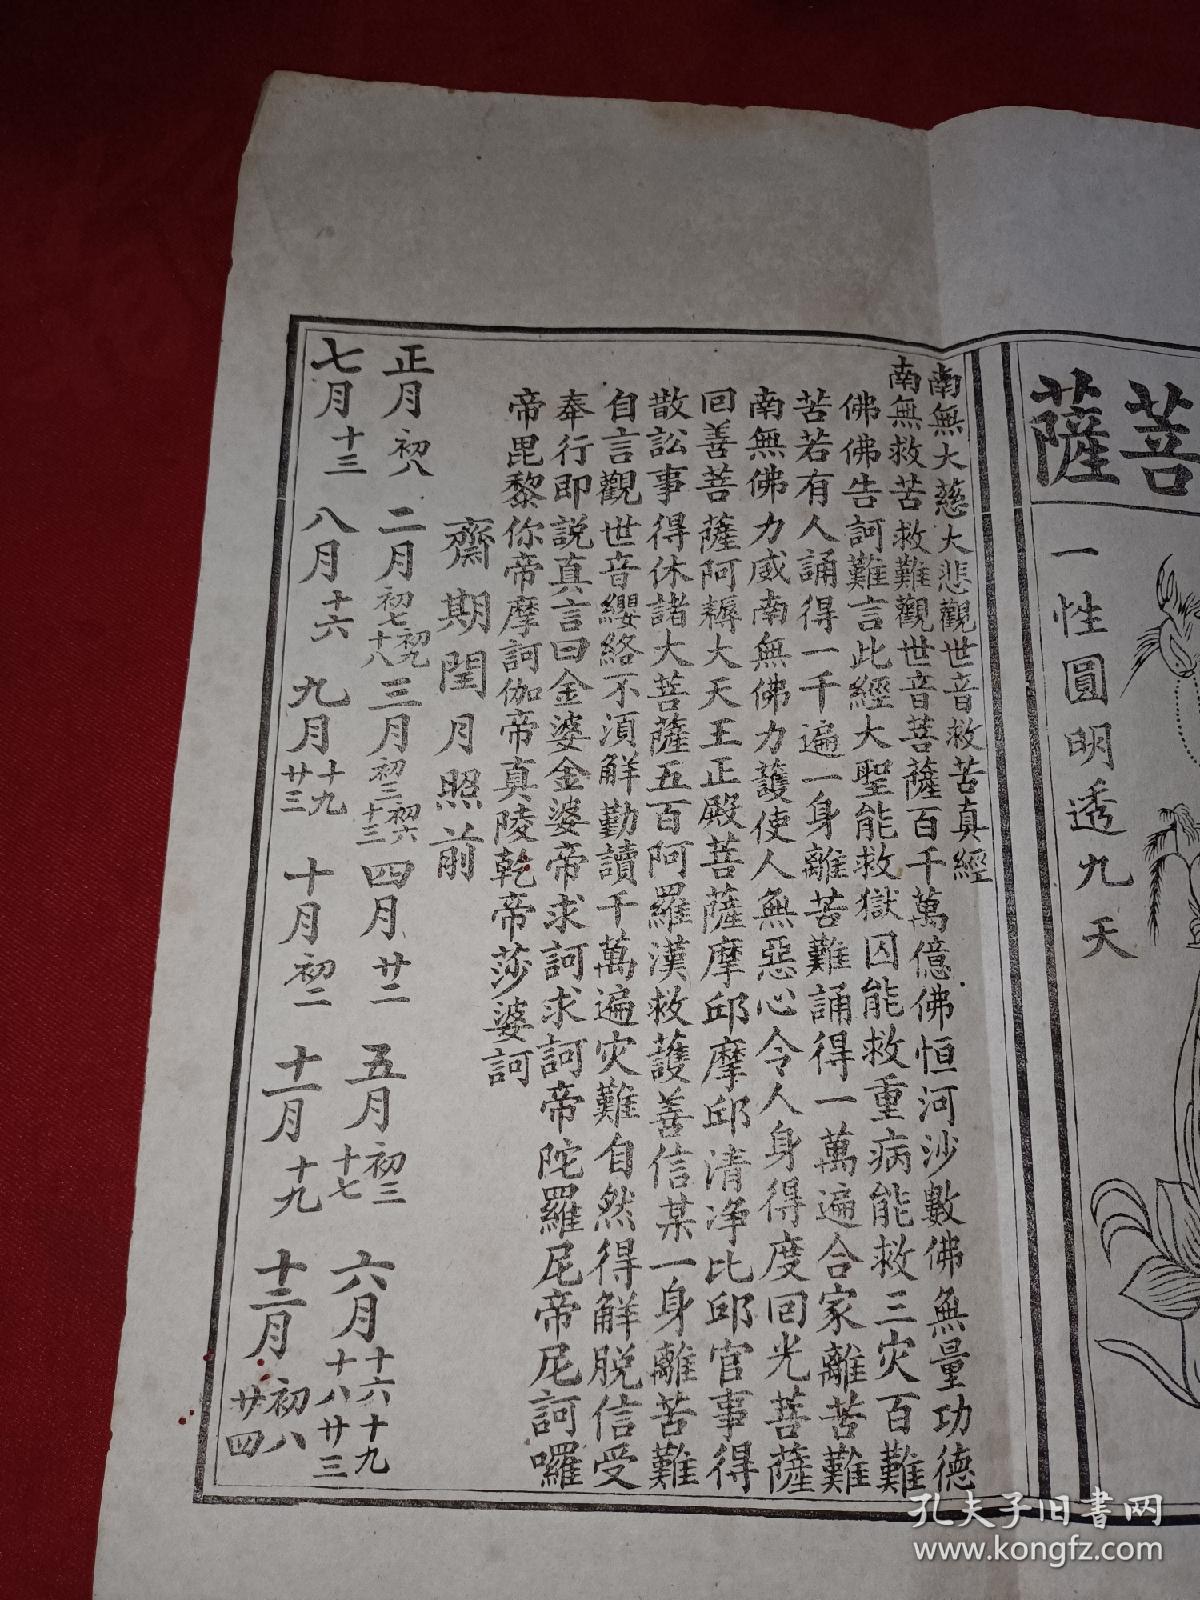 菩薩
一性圓明透九天
南無大慈大悲觀世音救苦真經
南無救苦救難觀世音菩薩百千萬億佛恒河沙數佛無量功德
佛佛告訶難言此經大聖能救獄囚能救重病能救三灾百難
苦若有人誦得一千遍一身離苦難誦得一萬遍合家離苦難
南無佛力威南無佛力護使人無惡心令人身得度回光菩薩
回善菩薩阿耨大天王正殿菩薩摩邱摩邱清净比邱官事得
散訟事得休諸大菩薩五百阿羅漢救護善信某一身離苦難
自言觀世音纓絡不須解勤讀千萬遍灾難自然得解脱信受
奉行即説真言曰金婆金婆帝求訶求訶帝陀羅尼帝尼訶囉
帝毘黎你帝摩訶伽帝真陵乾帝莎婆訶
齋期閏月照前
正月初八 二月初七初九十八 三月初三初六十三 四月廿二 五月初三十七 六月十六十九十八廿三
七月十三 八月十六 九月十九廿三 十月初二 十一月十九 十二月初八廿四
孔夫子旧书网
www.kongfz.com